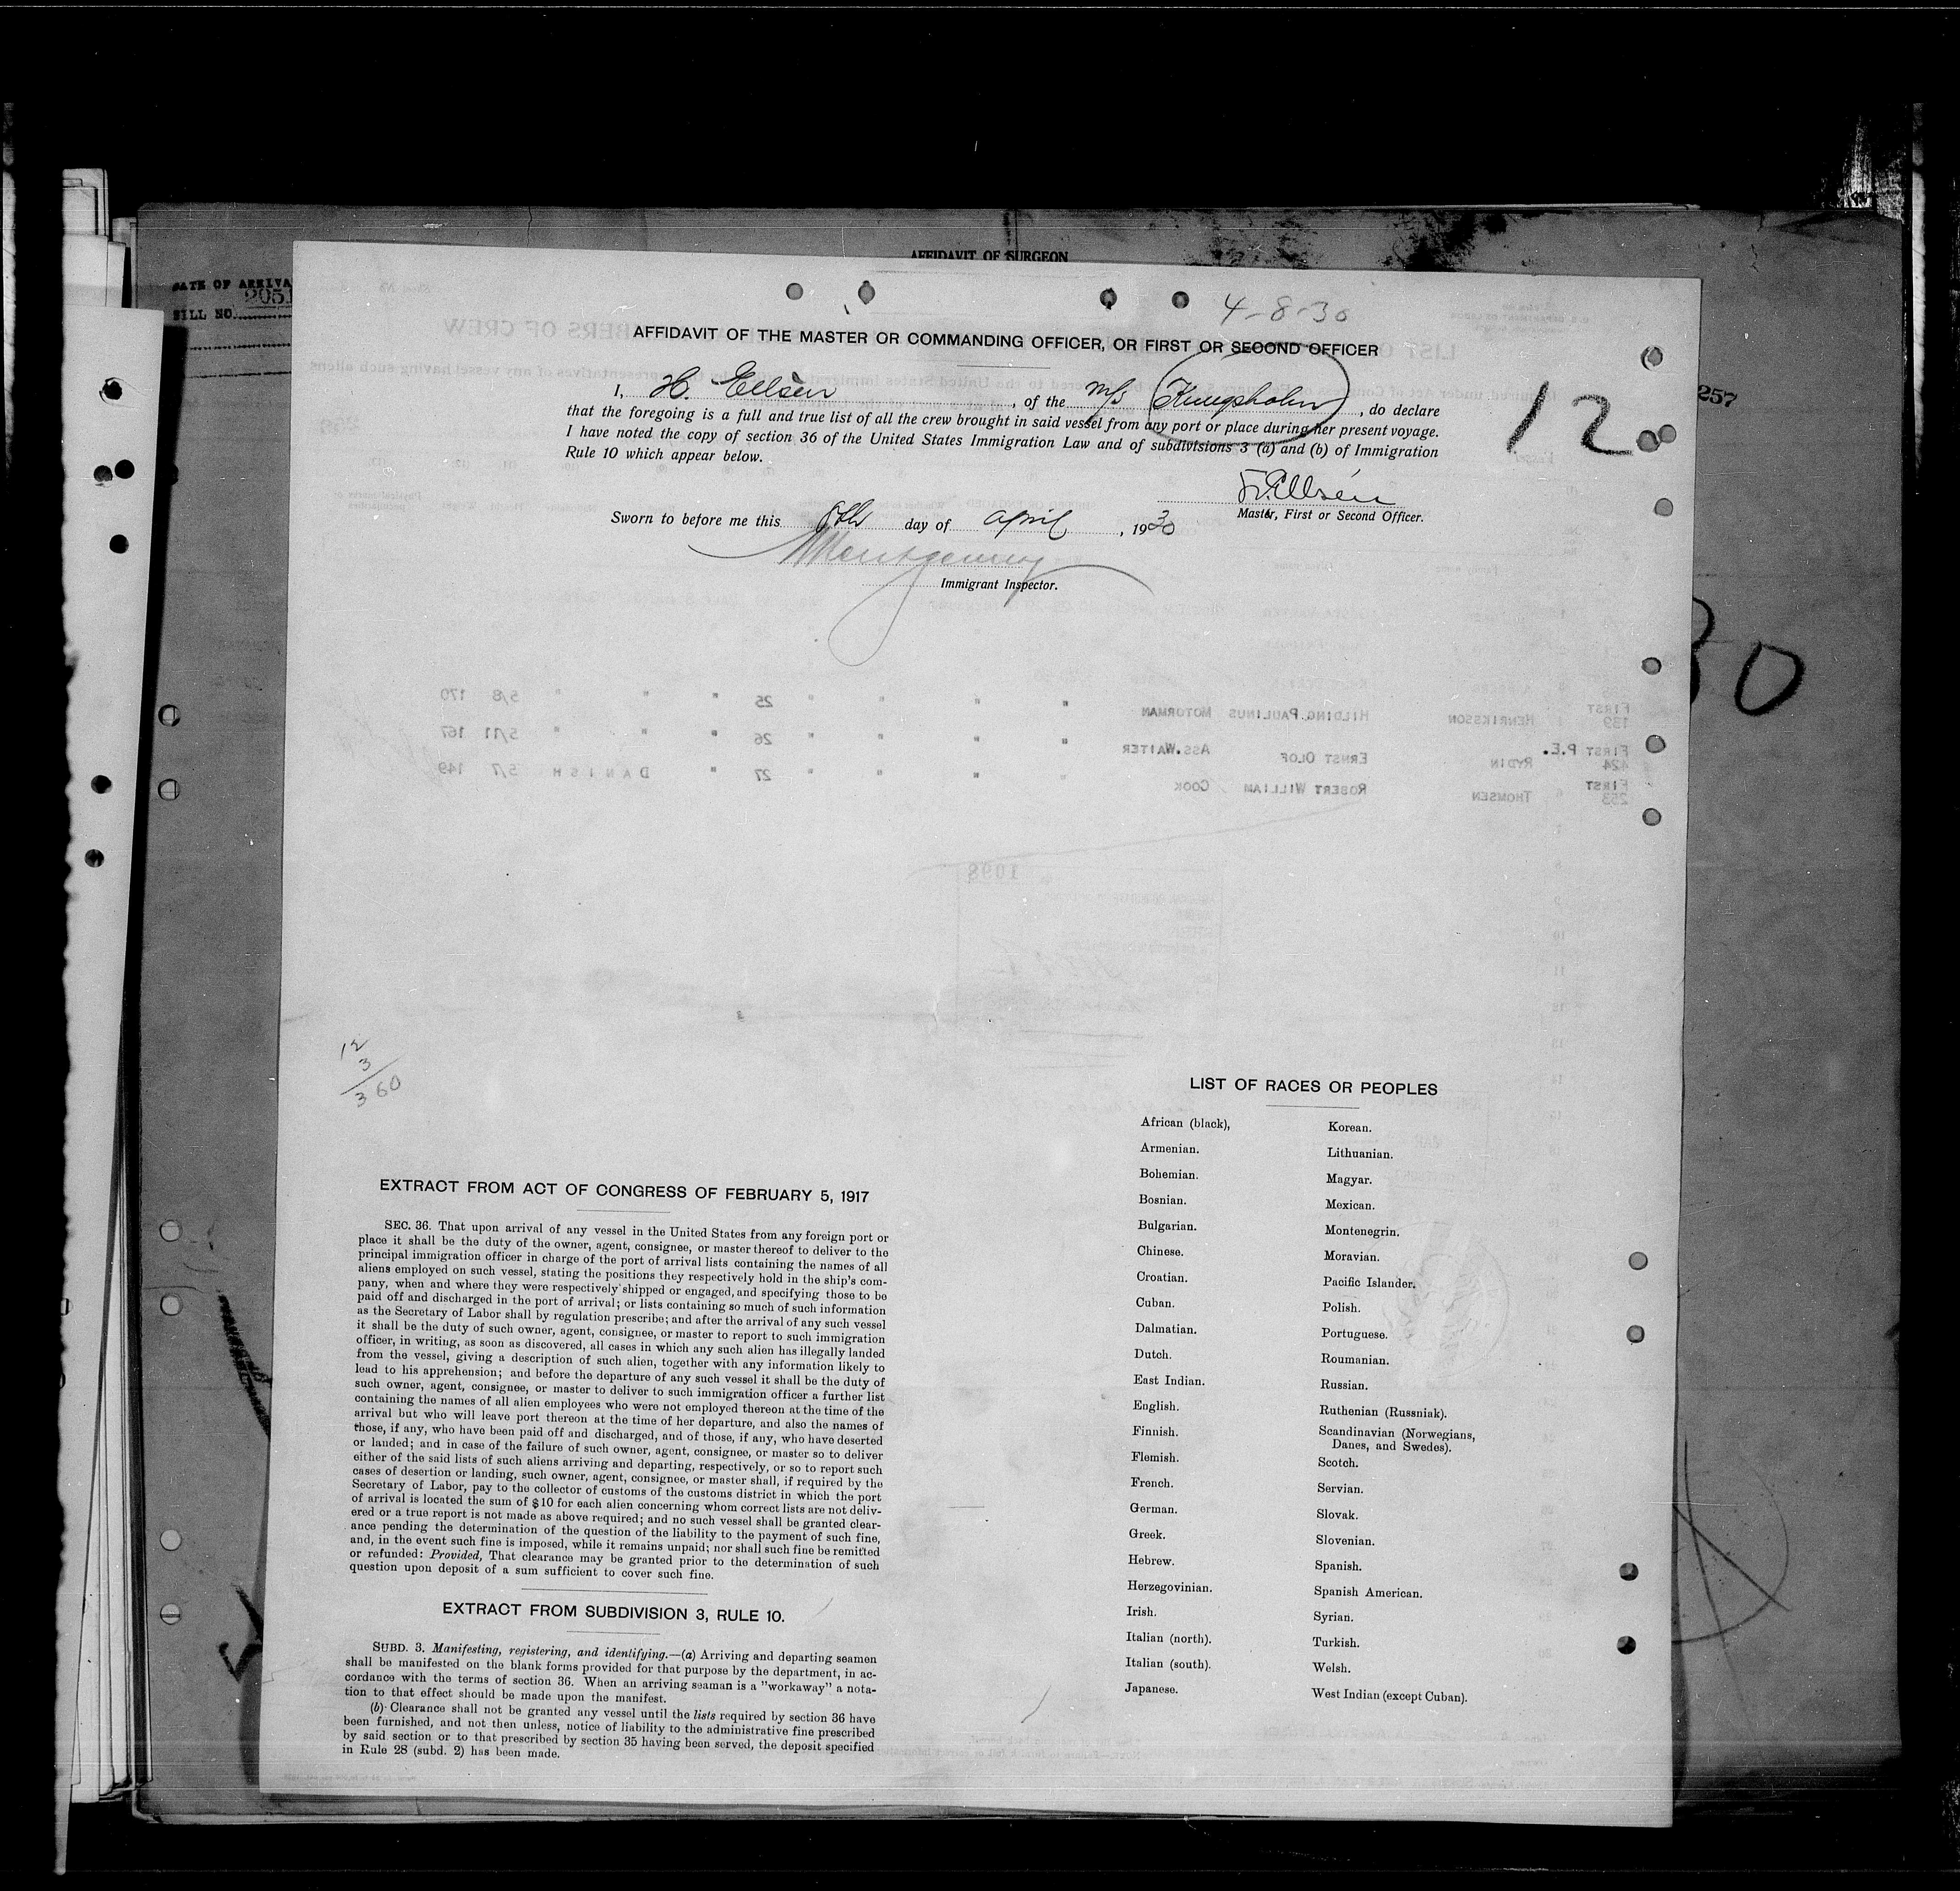 AFFIDAVIT OF SURGEON
DATE OF ARRIVA
2051
BILL NO.
257
30
4-8-30
AFFIDAVIT OF THE MASTER OR COMMANDING OFFICER, OR FIRST OR SECOND OFFICER
12
I, H. Ellsén, of the M/S Kungsholm, do declare
that the foregoing is a full and true list of all the crew brought in said vessel from any port or place during her present voyage.
I have noted the copy of section 36 of the United States Immigration Law and of subdivisions 3 (a) and (b) of Immigration
Rule 10 which appear below.
H. Ellsén
Master, First or Second Officer.
Sworn to before me this 8th day of april, 1930
Montgomery
Immigrant Inspector.
FIRST
139 HENRIKSSON HILDING PAULINUS MOTORMAN " " " " 25 " " " 5/8 170
FIRST P.E.
424 RYDIN ERNST OLOF ASS.WAITER " " " " 26 " " " 5/11 167
FIRST
253 THOMSEN ROBERT WILLIAM COOK " " " " 27 " DANISH 5/7 149
1098
12
3
360
EXTRACT FROM ACT OF CONGRESS OF FEBRUARY 5, 1917
SEC. 36. That upon arrival of any vessel in the United States from any foreign port or
place it shall be the duty of the owner, agent, consignee, or master thereof to deliver to the
principal immigration officer in charge of the port of arrival lists containing the names of all
aliens employed on such vessel, stating the positions they respectively hold in the ship's com-
pany, when and where they were respectively shipped or engaged, and specifying those to be
paid off and discharged in the port of arrival; or lists containing so much of such information
as the Secretary of Labor shall by regulation prescribe; and after the arrival of any such vessel
it shall be the duty of such owner, agent, consignee, or master to report to such immigration
officer, in writing, as soon as discovered, all cases in which any such alien has illegally landed
from the vessel, giving a description of such alien, together with any information likely to
lead to his apprehension; and before the departure of any such vessel it shall be the duty of
such owner, agent, consignee, or master to deliver to such immigration officer a further list
containing the names of all alien employees who were not employed thereon at the time of the
arrival but who will leave port thereon at the time of her departure, and also the names of
those, if any, who have been paid off and discharged, and of those, if any, who have deserted
or landed; and in case of the failure of such owner, agent, consignee, or master so to deliver
either of the said lists of such aliens arriving and departing, respectively, or so to report such
cases of desertion or landing, such owner, agent, consignee, or master shall, if required by the
Secretary of Labor, pay to the collector of customs of the customs district in which the port
of arrival is located the sum of $10 for each alien concerning whom correct lists are not deliv-
ered or a true report is not made as above required; and no such vessel shall be granted clear-
ance pending the determination of the question of the liability to the payment of such fine,
and, in the event such fine is imposed, while it remains unpaid; nor shall such fine be remitted
or refunded: Provided, That clearance may be granted prior to the determination of such
question upon deposit of a sum sufficient to cover such fine.
EXTRACT FROM SUBDIVISION 3, RULE 10.
SUBD. 3. Manifesting, registering, and identifying.—(a) Arriving and departing seamen
shall be manifested on the blank forms provided for that purpose by the department, in ac-
cordance with the terms of section 36. When an arriving seaman is a "workaway" a nota-
tion to that effect should be made upon the manifest.
(b) Clearance shall not be granted any vessel until the lists required by section 36 have
been furnished, and not then unless, notice of liability to the administrative fine prescribed
by said section or to that prescribed by section 35 having been served, the deposit specified
in Rule 28 (subd. 2) has been made.
LIST OF RACES OR PEOPLES
African (black),
Armenian.
Bohemian.
Bosnian.
Bulgarian.
Chinese.
Croatian.
Cuban.
Dalmatian.
Dutch.
East Indian.
English.
Finnish.
Flemish.
French.
German.
Greek.
Hebrew.
Herzegovinian.
Irish.
Italian (north).
Italian (south).
Japanese.
Korean.
Lithuanian.
Magyar.
Mexican.
Montenegrin.
Moravian.
Pacific Islander.
Polish.
Portuguese.
Roumanian.
Russian.
Ruthenian (Russniak).
Scandinavian (Norwegians,
Danes, and Swedes).
Scotch.
Servian.
Slovak.
Slovenian.
Spanish.
Spanish American.
Syrian.
Turkish.
Welsh.
West Indian (except Cuban).